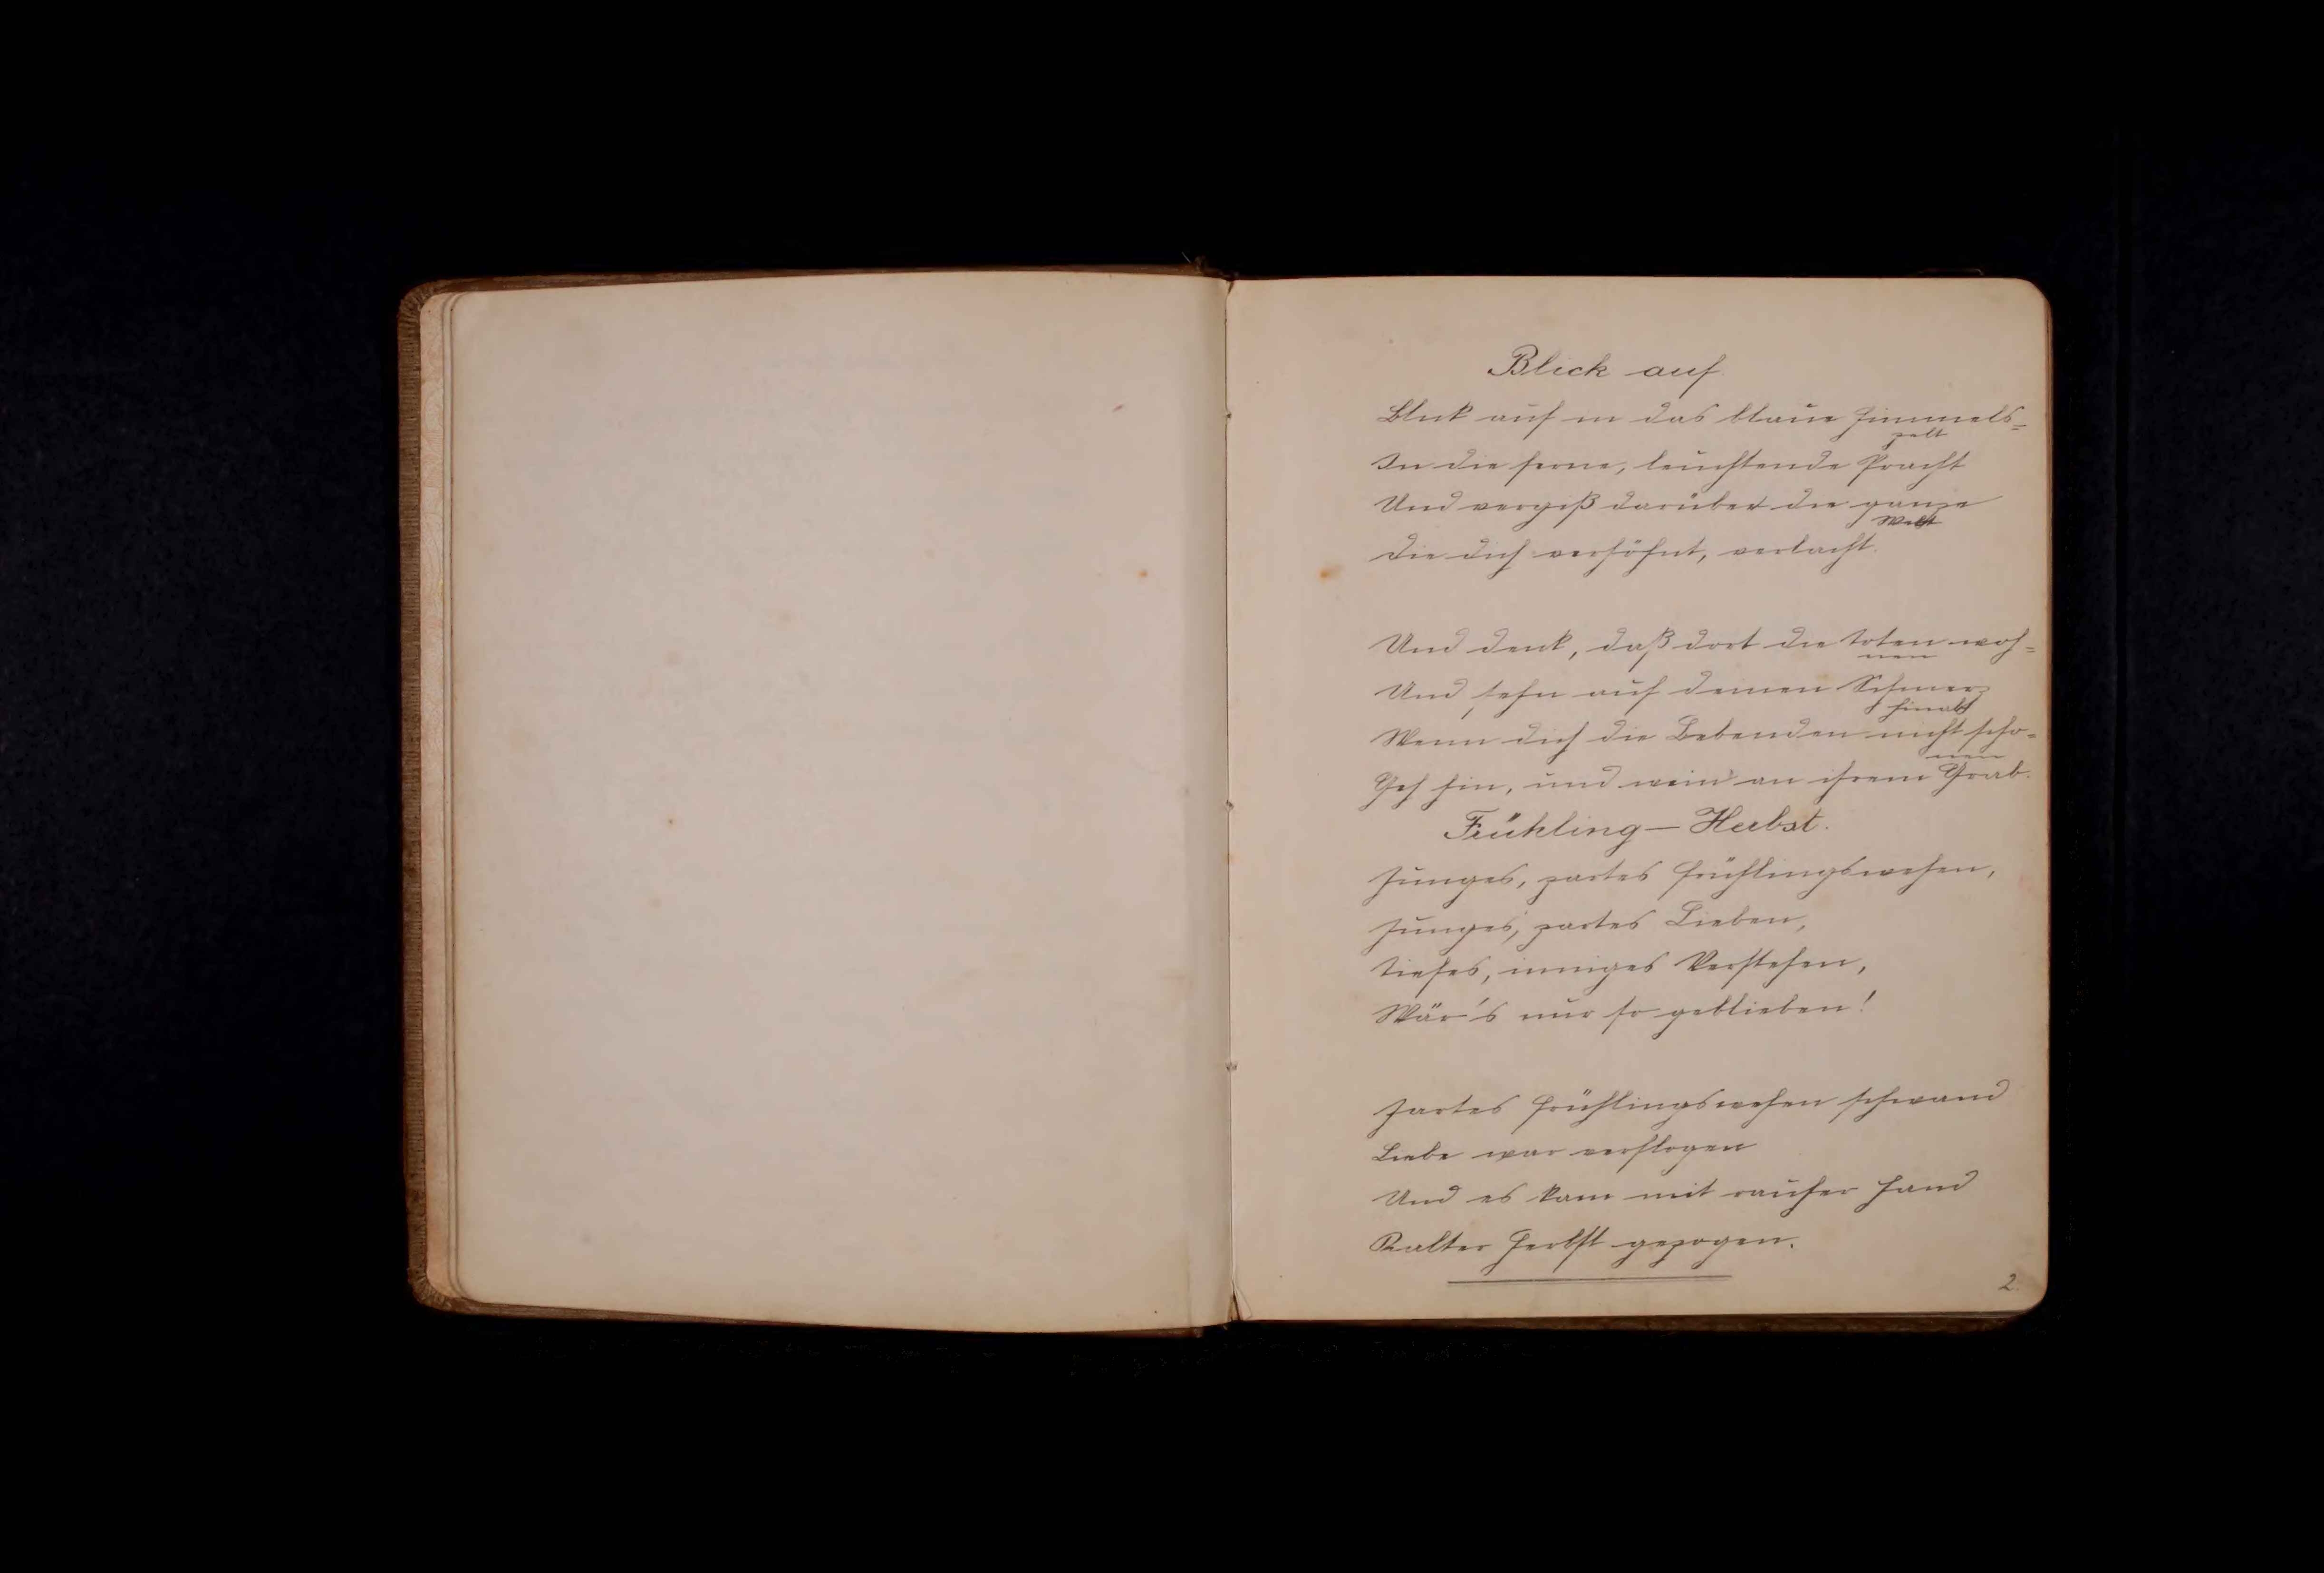 Blick auf
Blick auf in das blaue Himmels=
zelt
In die ferne, leuchtende Pracht
Und vergiß darüber die ganze
Welt
Die dich verhöhnt, verlacht.
Und denk, daß dort die Toten woh=
nen
Und sehn auf deinen Schmerz
hinab
Wenn dich die Lebenden nicht scho=
nen
Geh hin, und wein' an ihrem Grab.
Frühling — Herbst.
Junges, zartes Frühlingswehen,
Junges, zartes Lieben,
Tiefes, inniges Verstehen,
Wär's nur so geblieben!
Zartes Frühlingswehen schwand
Liebe war verflogen
Und es kam mit rauher Hand
Kalter Herbst gezogen.
2.